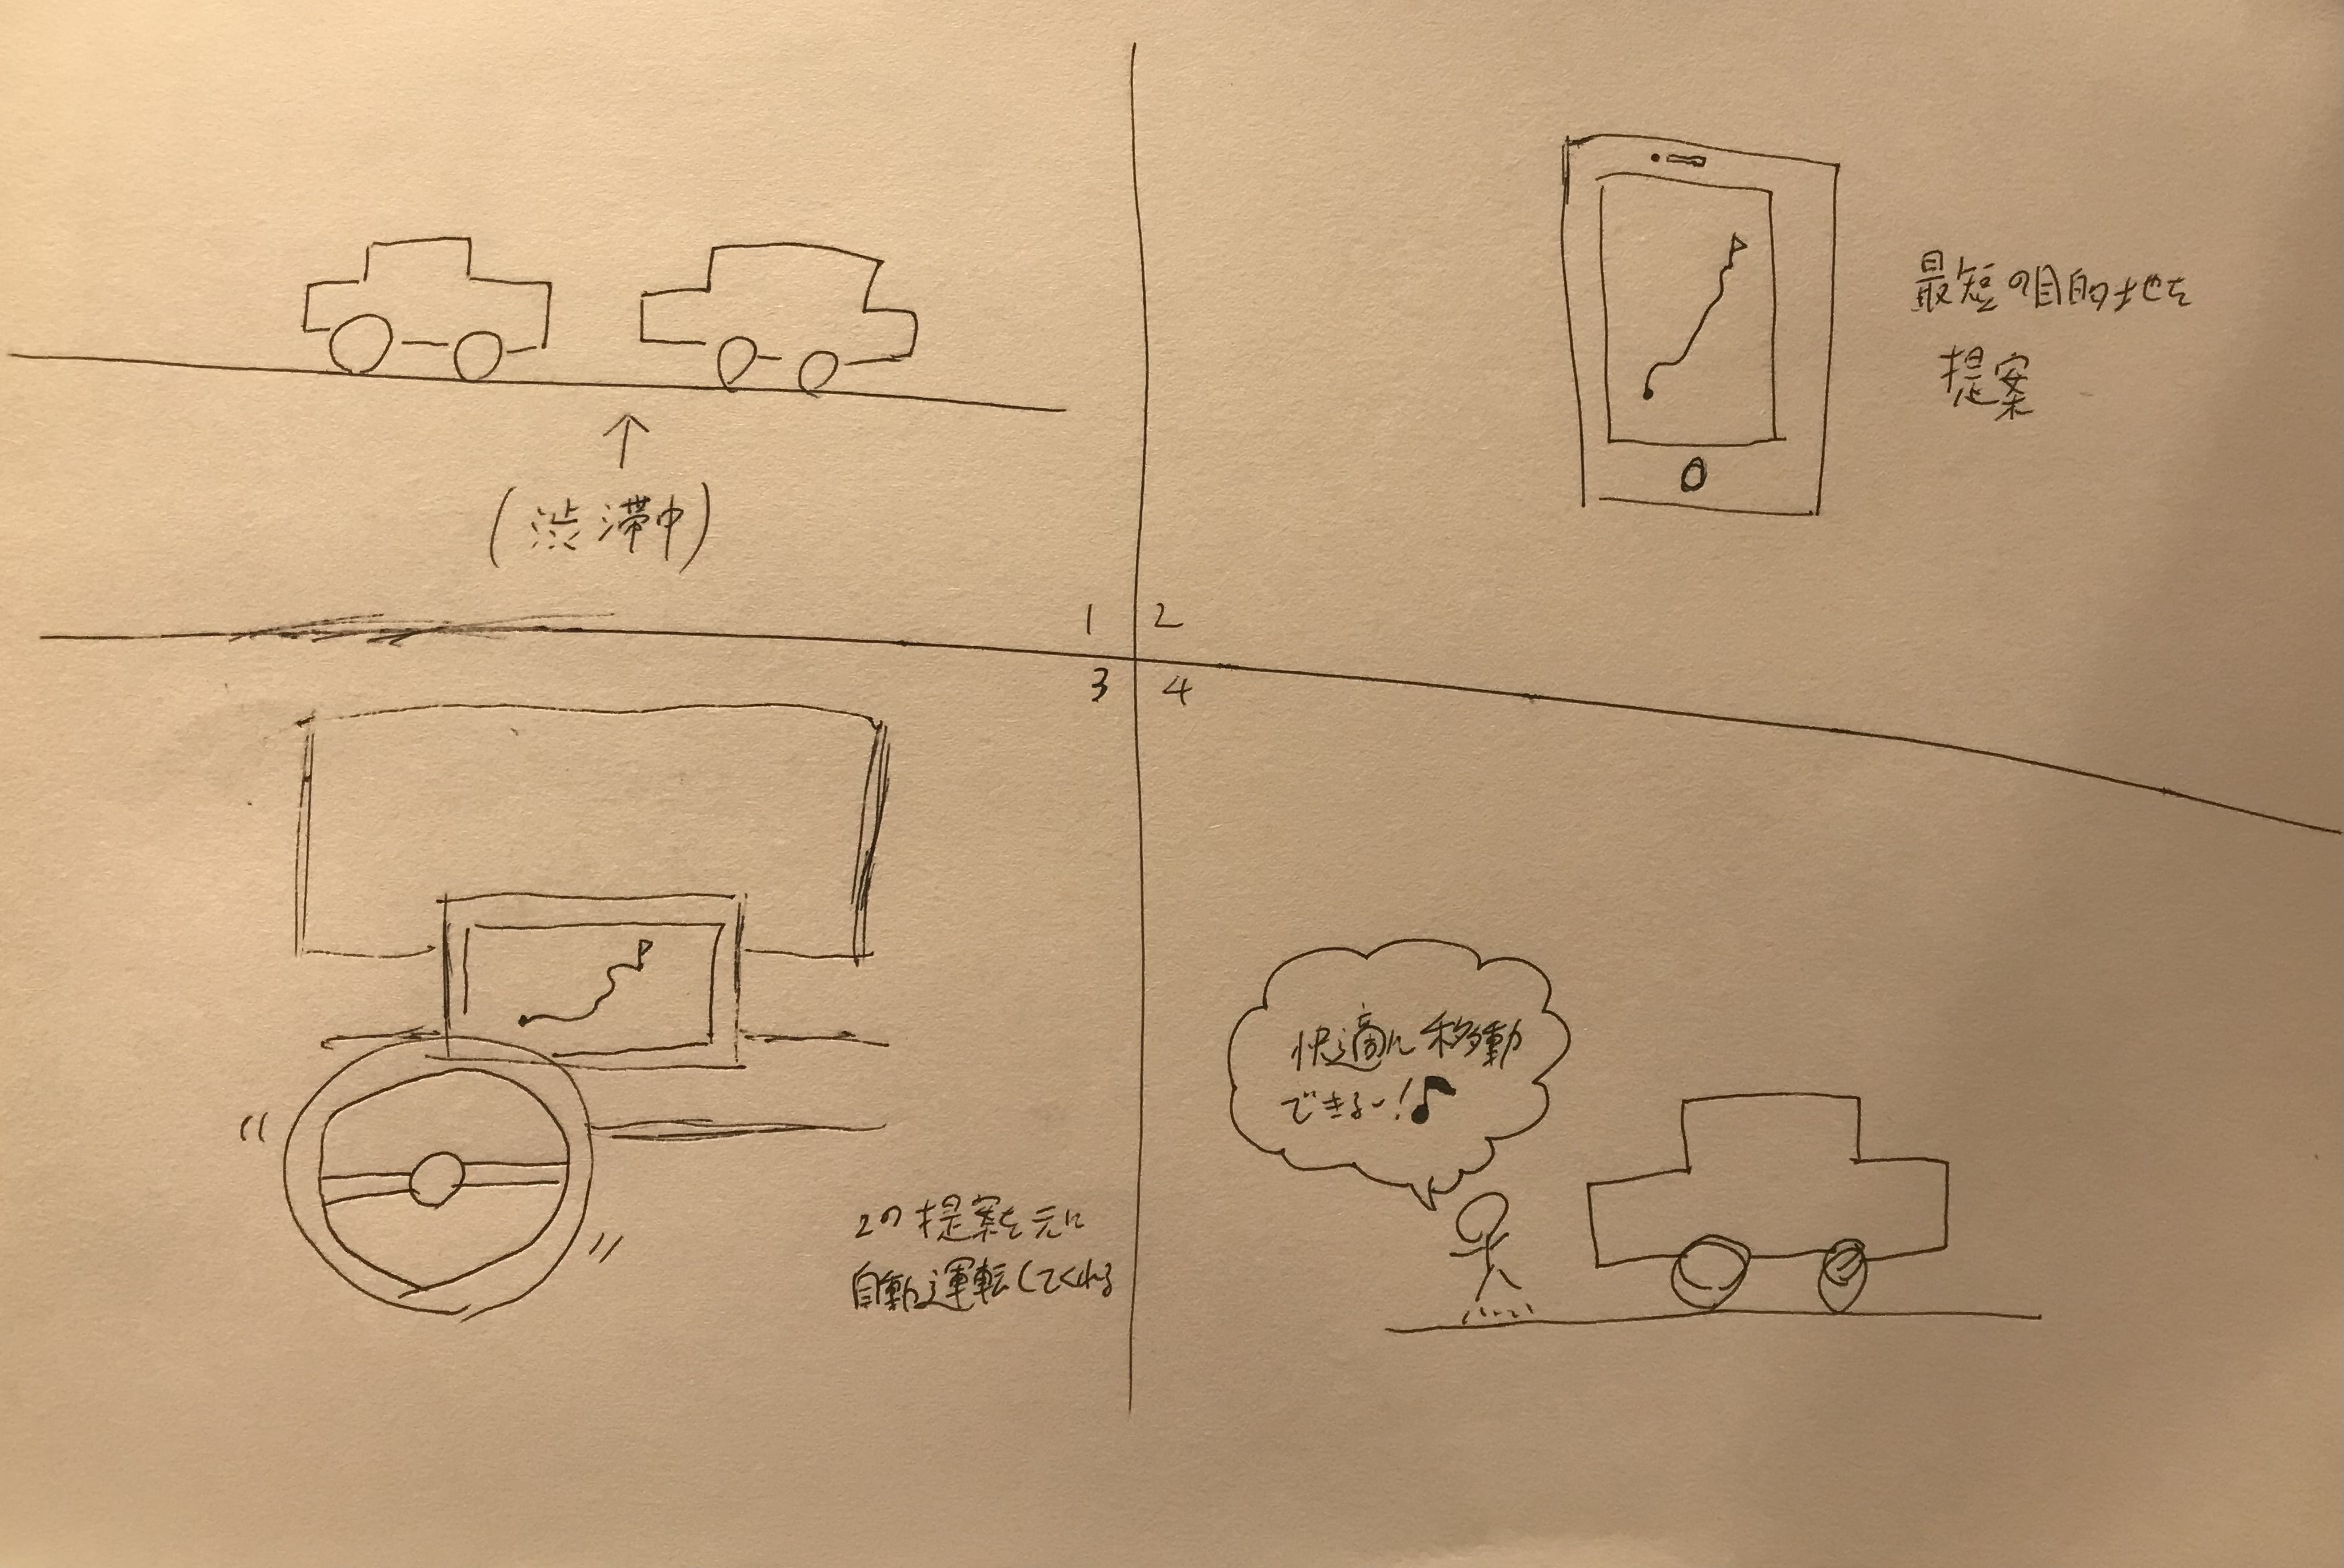 (渋滞中)
1
2
最短の目的地を
提案
3
2の提案を元に
自動運転してくれる
4
快適に移動
できるー!♪